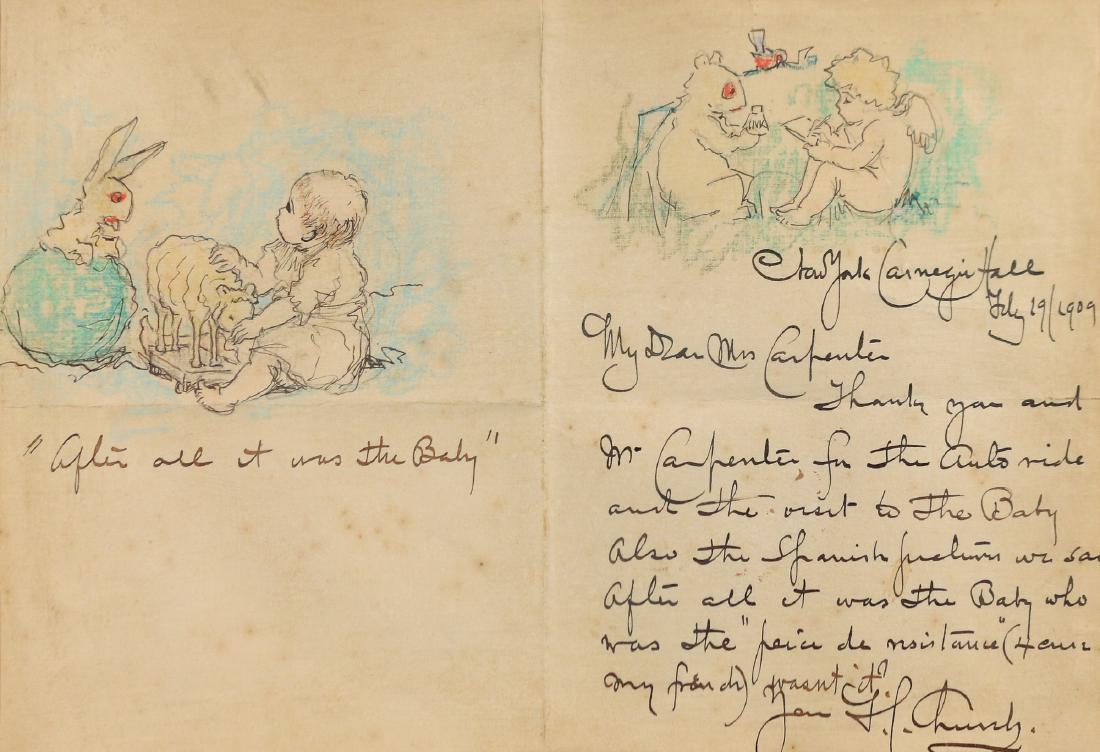 "After all it was the Baby"
INK
New York Carnegie Hall
Feby 19/1909
My Dear Mrs Carpenter
Thank you and
Mr Carpenter for the Auto ride
and the visit to the Baby
Also the Spanish pictures we saw
After all it was the Baby who
was the "peice de resistance" (
my french) wasnt it?
F. S. Church.